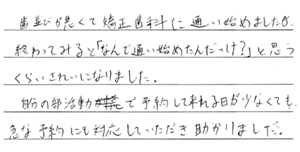 歯並びが悪くて矯正歯科に通い始めましたが、
終わってみると「なんで通い始めたんだっけ？」と思う
くらいきれいになりました。
自分の部活動で予約して来れる日が少なくても、
急な予約にも対応していただき助かりました。